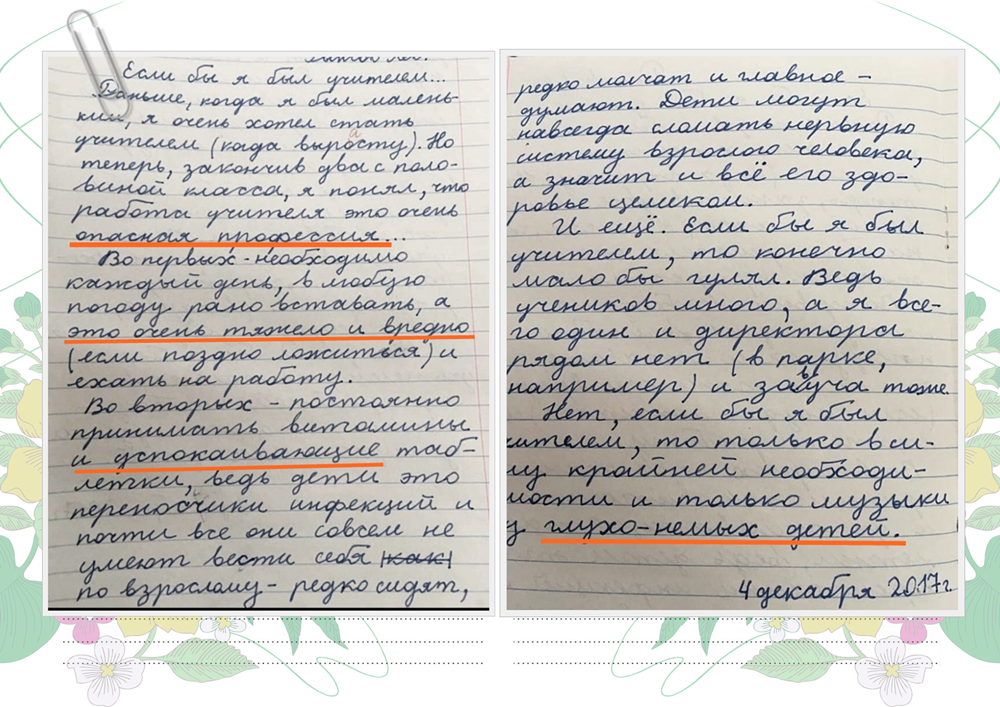 Если бы я был учителем...
Раньше, когда я был малень-
ким, я очень хотел стать
учителем (когда вырасту). Но
теперь, закончив два с поло-
виной класса, я понял, что
работа учителя это очень
опасная профессия...
Во первых - необходимо
каждый день, в любую
погоду рано вставать, а
это очень тяжело и вредно
(если поздно ложиться) и
ехать на работу.
Во вторых - постоянно
принимать витамины
и успокаивающие таб-
летки, ведь дети это
переносчики инфекций и
почти все они совсем не
умеют вести себя как
по взрослому - редко сидят,
редко молчат и главное -
думают. Дети могут
навсегда сломать нервную
систему взрослого человека,
а значит и всё его здо-
ровье целиком.
И ещё. Если бы я был
учителем, то конечно
мало бы гулял. Ведь
учеников много, а я все-
го один и директора
рядом нет (в парке,
например) и завуча тоже.
Нет, если бы я был
учителем, то только в си-
лу крайней необходи-
мости и только музыки
у глухо-немых детей.
4 декабря 2017г.